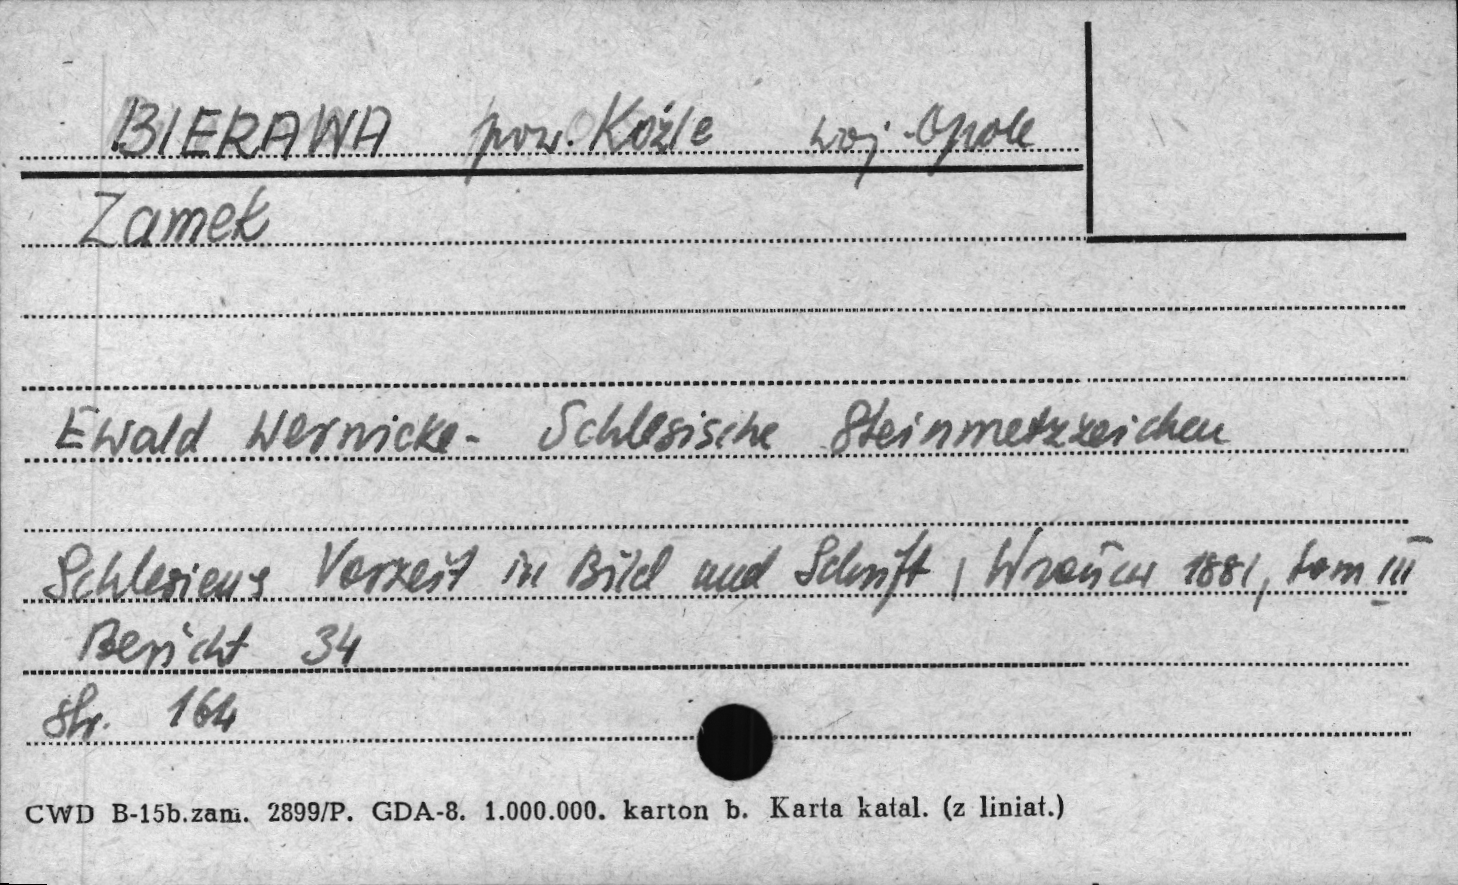 BIERAWA pow. Koźle woj. Opole
Zamek
Ewald Wernicke - Schlesische Steinmetzzeichen
Schlesiens Vorzeit in Bild und Schrift, Wrocław 1881, tom III
Bericht 34
str. 164
CWD B-15b.zam. 2899/P. GDA-8. 1.000.000. karton b. Karta katal. (z liniat.)